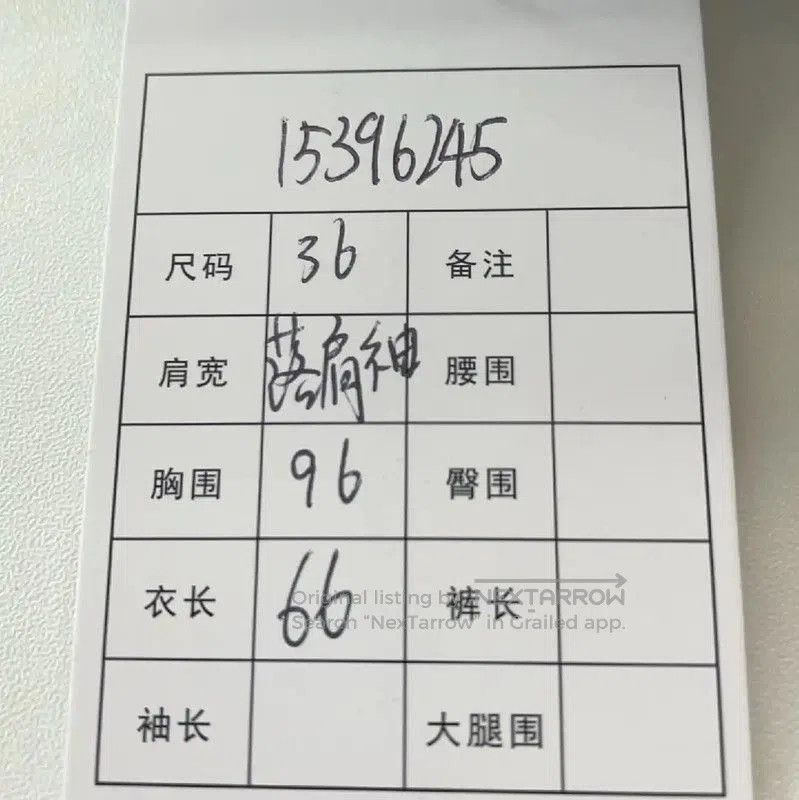 15396245
尺码 36 备注
肩宽 落肩袖 腰围
胸围 96 臀围
衣长 66 裤长
Original listing by NEXTARROW
Search "NexTarrow" in Grailed app.
袖长 大腿围